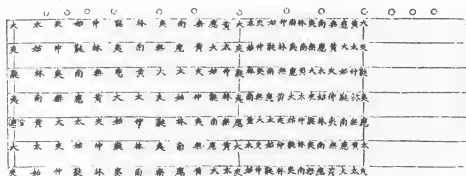 大太夾姑仲蕤林夷南無應黄大太夾姑仲蕤林夷南無應黄大
夾姑仲蕤林夷南無應黄大太夾姑仲蕤林夷南無應黄大太夾
蕤林夷南無應黄大太夾姑仲蕤林夷南無應黄大太夾姑仲蕤
夷南無應黄大太夾姑仲蕤林夷南無應黄大太夾姑仲蕤林夷
應黄大太夾姑仲蕤林夷南無應黄大太夾姑仲蕤林夷南無應
大太夾姑仲蕤林夷南無應黄大太夾姑仲蕤林夷南無應黄大
夾姑仲蕤林夷南無應黄大太夾姑仲蕤林夷南無應黄大太夾